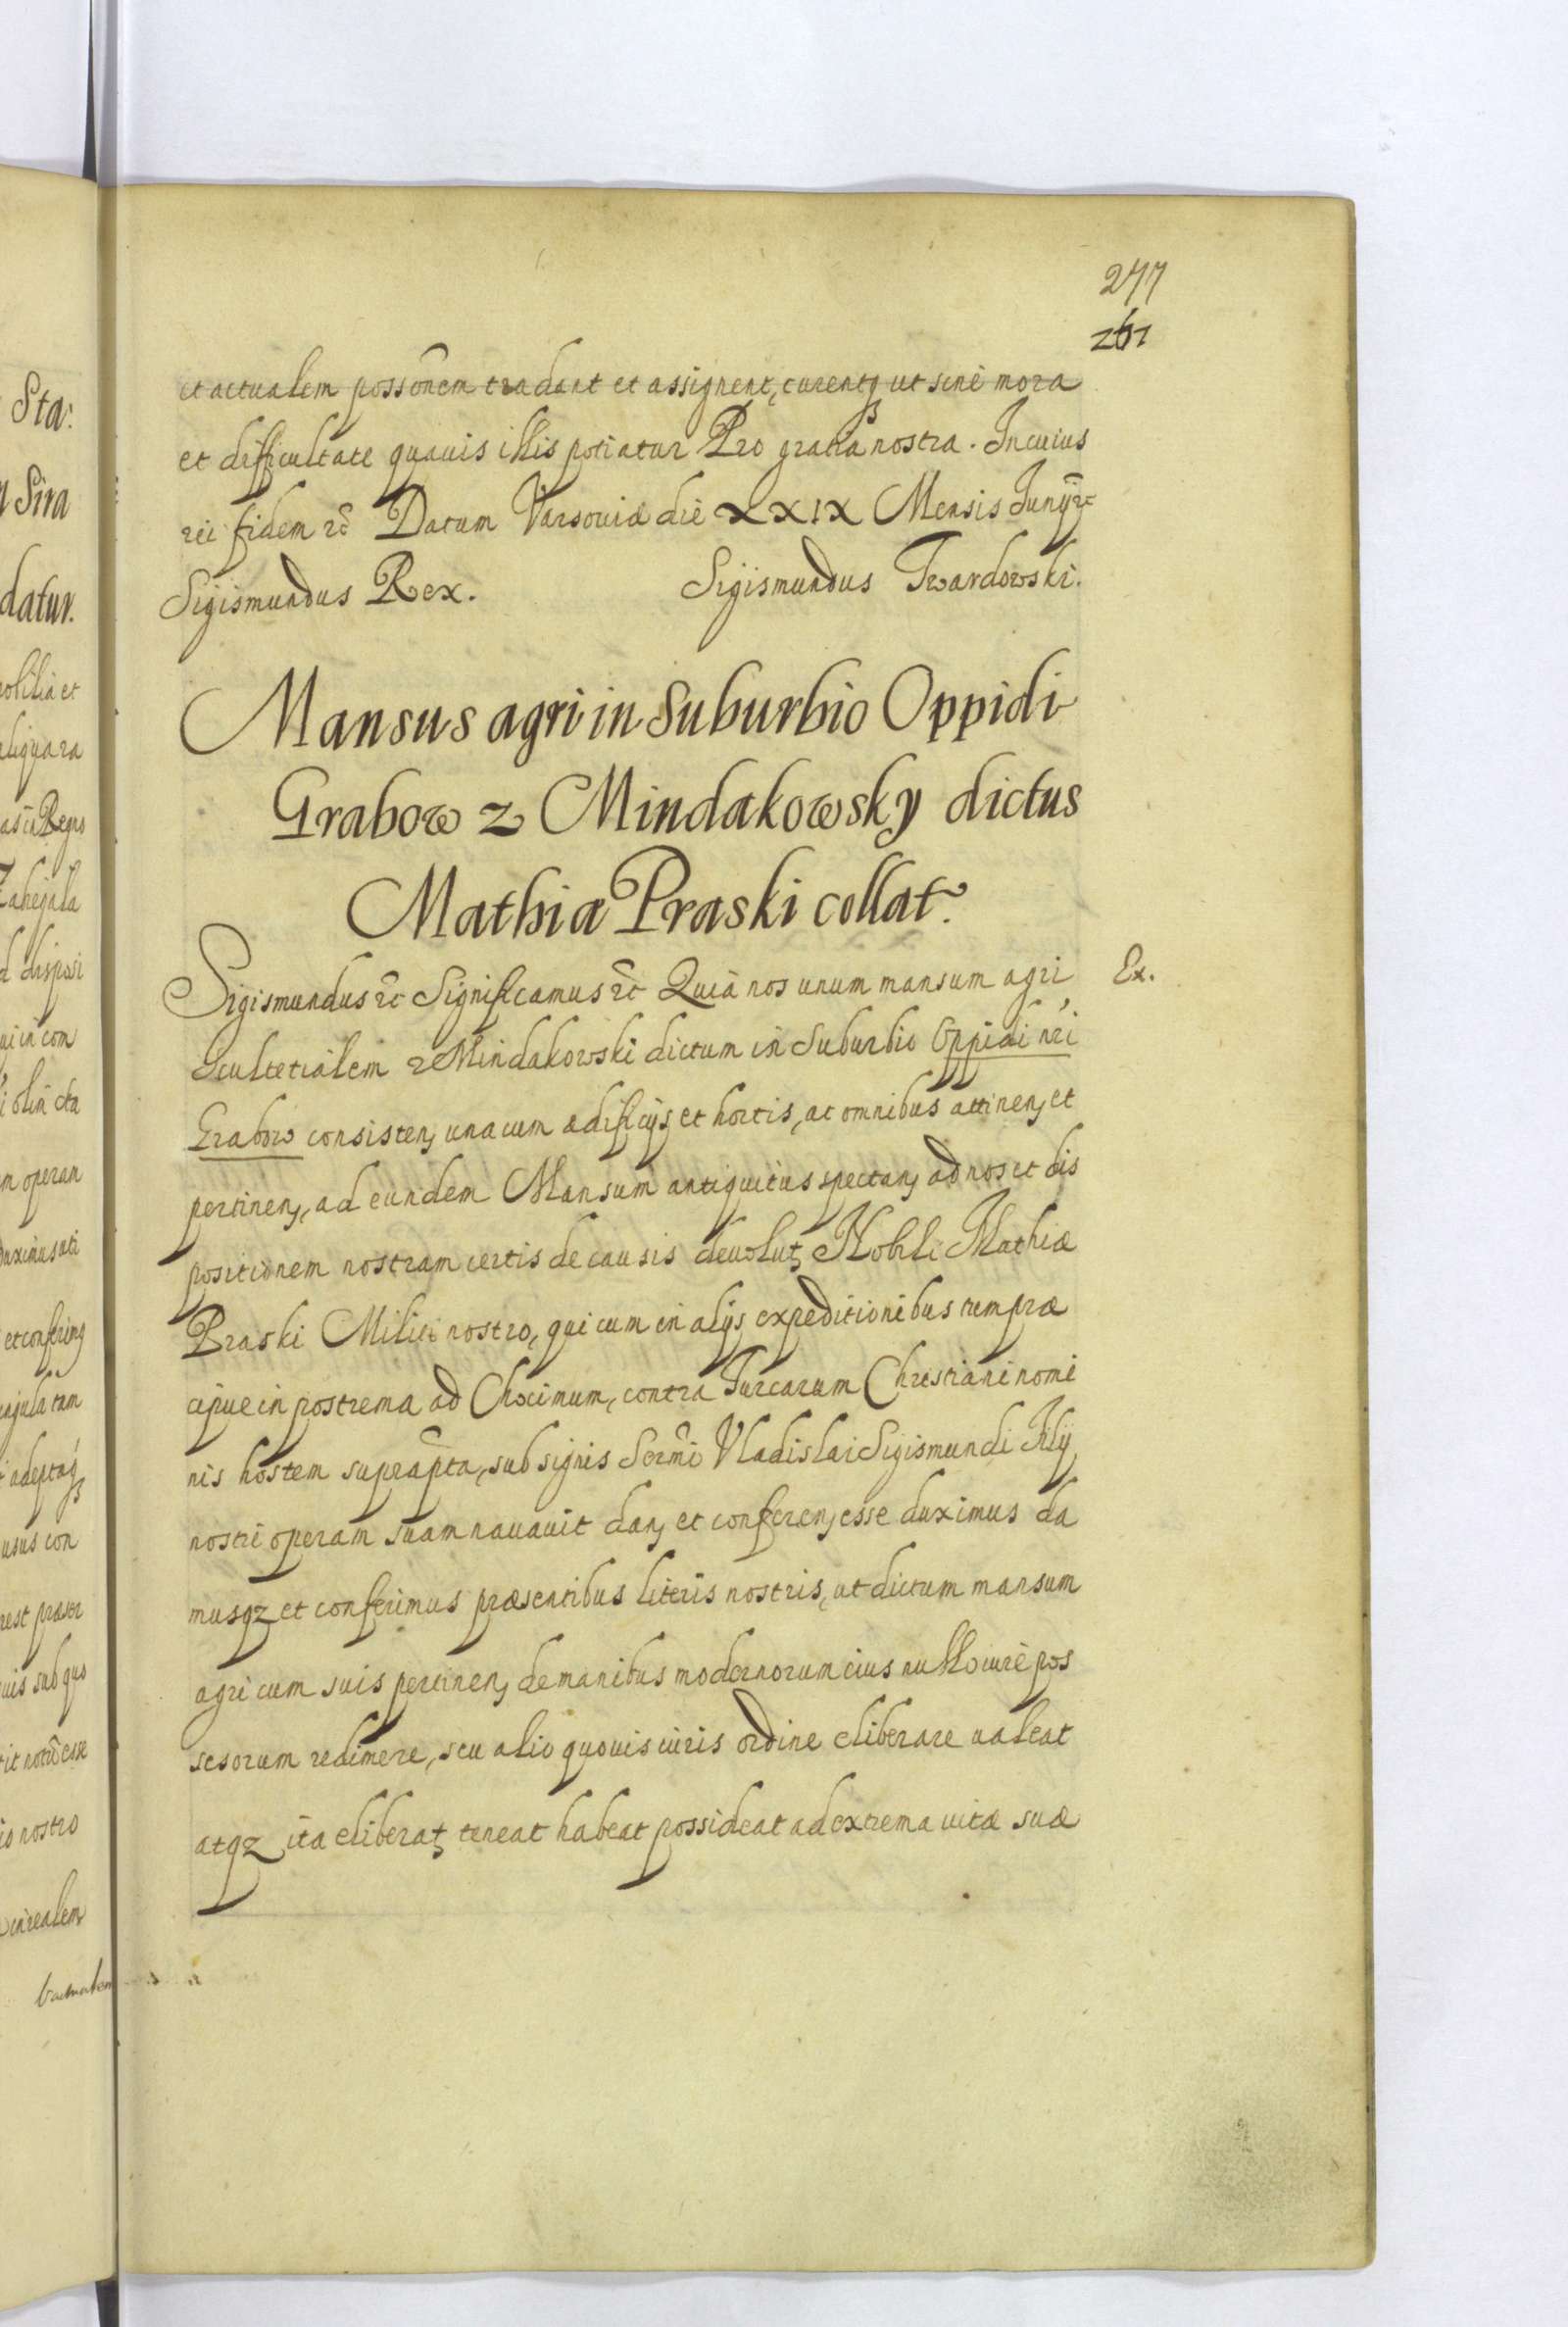 277
267
et actualem possõnem tradant et assignent, curentq ut sine mora
et difficultate quavis illis potiatur Pro gratia nostra. In cuius
rei fidem etc Datum Varsoviæ die XXIX Mensis Junij etc
Sigismundus Rex. Sigismundus Twardowski.
Mansus agri in Suburbio Oppidi
Grabow z Mindakowsky dictus
Mathiæ Praski collat.
Sigismundus etc Significamus etc Quia nos unum mansum agri
Ex.
Scultetialem z Mindakowski dictum in Suburbio Oppidi nri
Grabow consisten, una cum ædificijs et hortis, ac omnibus attinen, et
pertinen, ad eundem Mansum antiquitus spectan, ad nos et dis
positionem nostram certis de causis devolut, Nobili Mathiæ
Praski Militi nostro, qui cum in alijs expeditionibus tum præ
cipue in postrema ad Chocimum, contra Turcarum Christiani nomi
nis hostem suprapta, sub signis Sermi Vladislai Sigismundi Filij
nostri operam suam navavit dan, et conferen, esse duximus da
musqz et conferimus præsentibus literis nostris, ut dictum mansum
agri cum suis pertinen, de manibus modernorum eius nullo iure pos
sesorum redimere, seu alio quovis iuris ordine eliberare valeat
atqz ita eliberat, teneat habeat possideat ad extrema vitæ suæ
Sta:
Sira
datur.
obilia et
aliqua ra
Regno
d disposi
ui in com
m operan
et confering
adeptaq
usus con
uis sub quo
io nostro